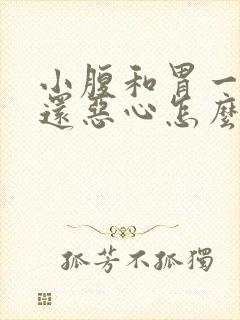 小腹和胃一
還惡心怎麼
孤芳不孤獨